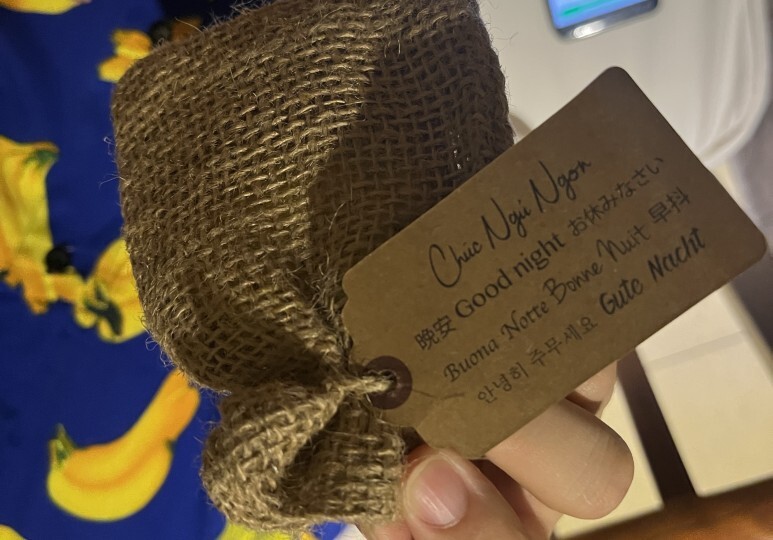 Chúc Ngủ Ngon
晚安 Good night お休みなさい
Buona Notte Bonne Nuit 早抖
안녕히 주무세요 Gute Nacht